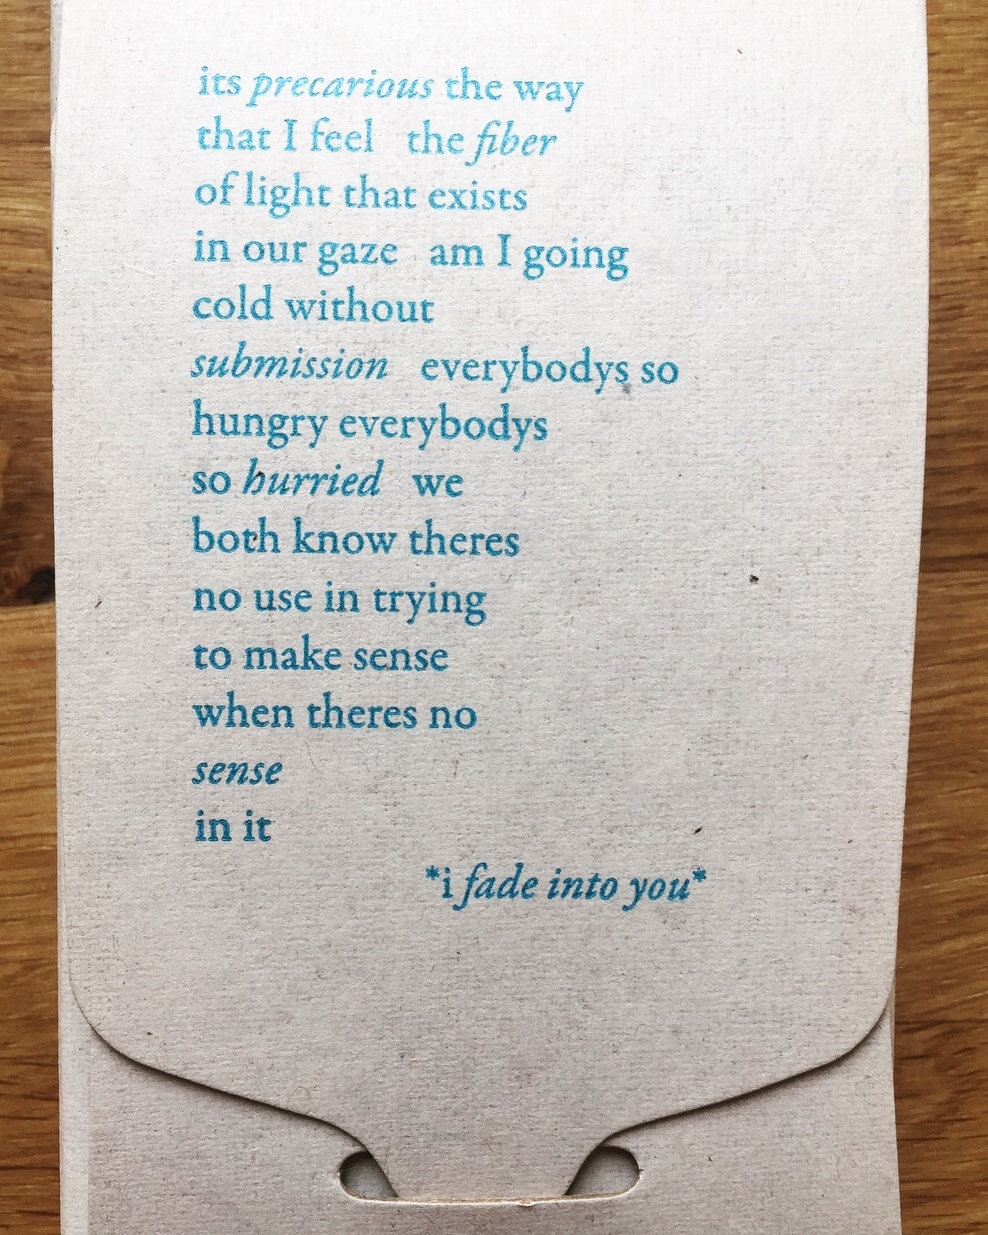 its precarious the way
that I feel   the fiber
of light that exists
in our gaze   am I going
cold without
submission   everybodys so
hungry everybodys
so hurried   we
both know theres
no use in trying
to make sense
when theres no
sense
in it
*i fade into you*